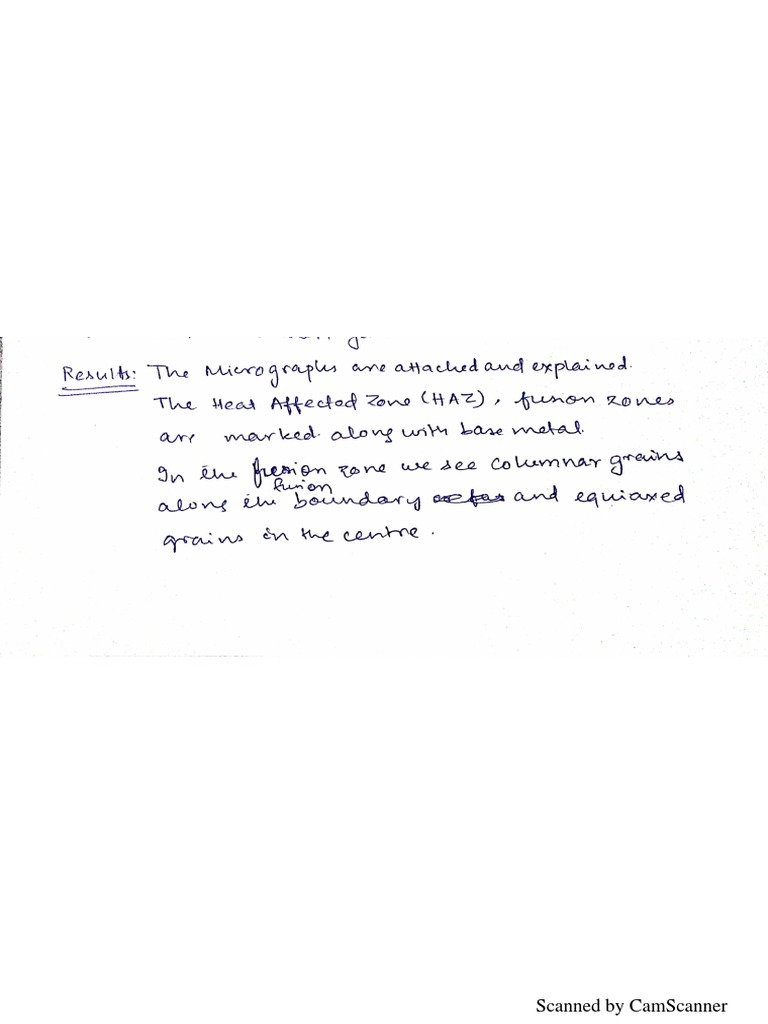 Results: The Micrographs are attached and explained.
The Heat Affected Zone (HAZ), fusion zones
are marked along with base metal.
In the fusion zone we see columnar grains
fusion
along the boundary and equiaxed
grains in the centre.
Scanned by CamScanner